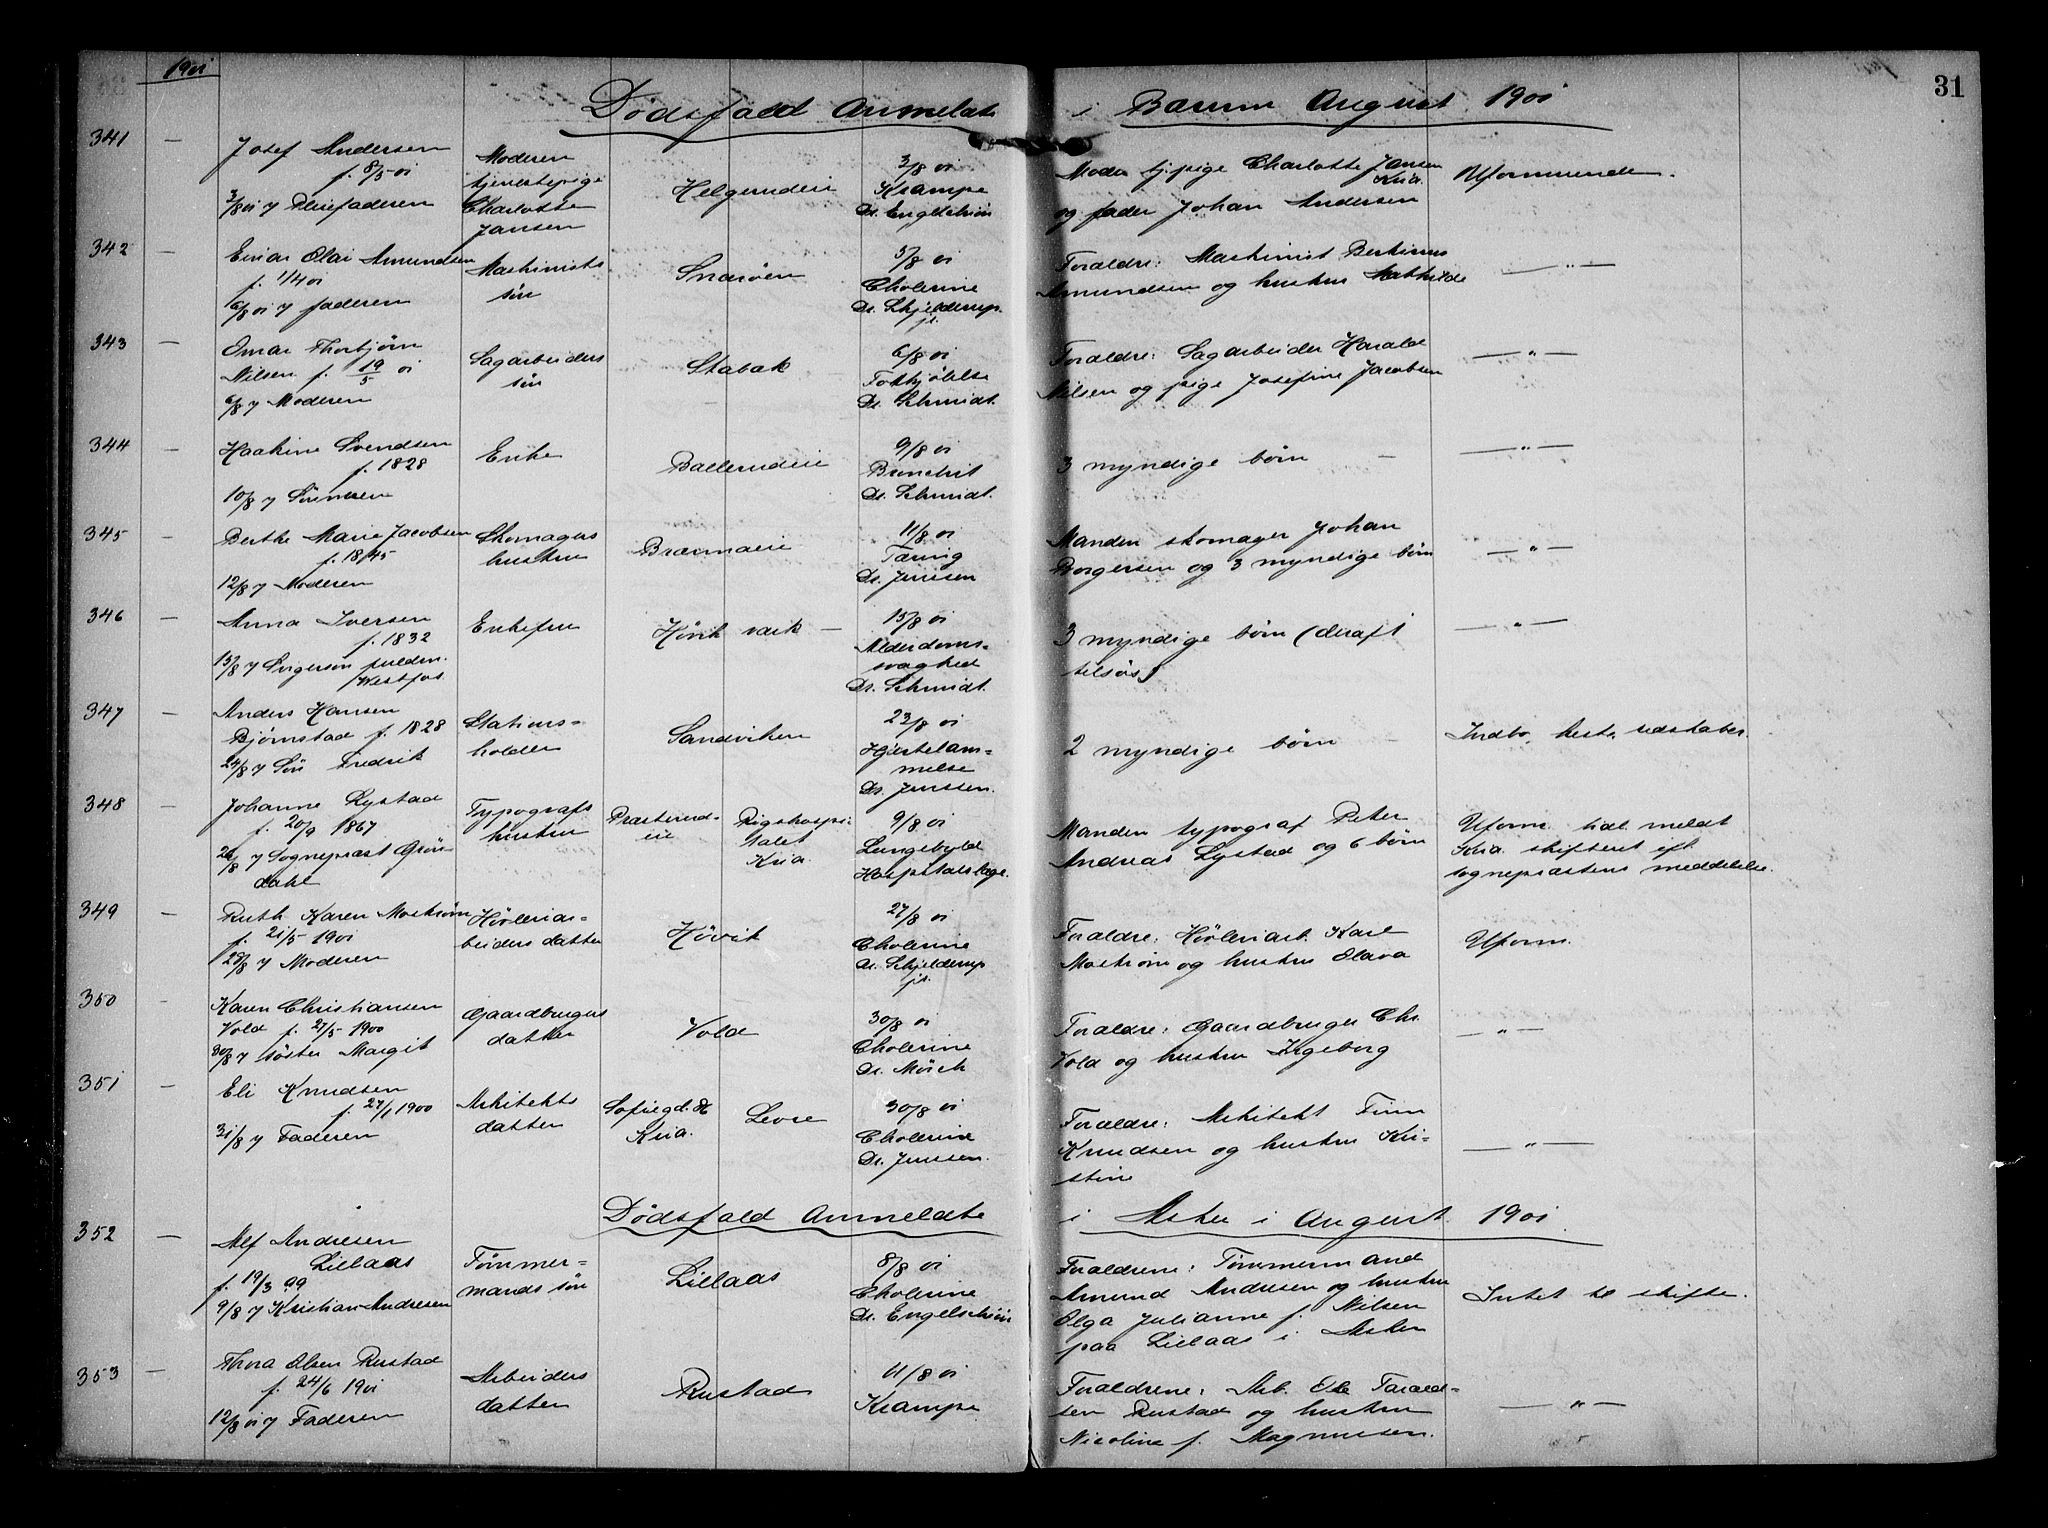 1901
31
Dødsfald Anmeldte i Bærum August 1901
341 — Josef Andersen
f. 8/5 01
3/8 01 7 Pleiefaderen
Moderen
tjenestepige
Charlotte
Jansen
Helgerudeie
3/8 01
Krampe
Dr. Engelschiøn
Moder tj. pige Charlotte Jansen
Kria.
og fader Johan Andersen
Uformuende.
342 — Einar Olai Amundsen
f. 1/4 01
6/8 01 7 faderen
Maskinists
søn
Snarøen
5/8 01
Cholerine
Dr. Schjelderup
jr.
Foræld​re: Maskinist Bertinius
Amundsen og hustru Mathilde
— " —
343 — Omar Thorbjørn
Nilsen f. 19/5 01
6/8 7 Moderen
Sagarbeiders
søn
Stabæk
6/8 01
Dr. Schmidt.
Forældre: Sagarbeider Harald
Nilsen og pige Josefine Jacobsen
— " —
344 — Haakine Svendsen
f. 1828
10/8 7 Sønnen
Enke
Ballerudeie
9/8 01
Bronchit
Dr. Schmidt.
3 myndige børn —
— " —
345 — Berthe Marie Jacobsen
f. 1845
12/8 7 Moderen
Skomagers
hustru
11/8 01
Tæring
Dr. Jenssen
Manden skomager Johan
Borgersen og 3 myndige børn
— " —
346 — Anna Iversen
f. 1832
15/8 7 Svigersøn
Westfos
Enkefru
Høvik værk —
15/8 01
Alderdoms-
svaghed
Dr. Schmidt.
3 myndige børn (deraf 1
tilsøs)
— " —
347 — Anders Hansen
Bjørnstad f. 1828
24/8 7 Søn Fredrik
Stations-
holder
Sandviken
23/8 01
Hjertelam-
melse
Dr. Jenssen.
2 myndige børn —
Indbo, heste, redskaber.
348 — Johanne Lystad
f. 20/9 1867
26/8 7 Sogneprest Grøn
dahl
Typografs
hustru
Præsterud-
eie
Rigshospi-
talet
Kria.
9/8 01
Lungebyld
Hospitalslæge.
Manden typograf Peter
Andreas Lystad og 6 børn
Uform. tidl. meldt
Kria. skifteret eft.
sognepræstens meddelelse.
349 — Ruth Karen Mostrøm
f. 21/5 1901
28/8 7 Moderen
Høvleriar-
beiders datter
Høvik
27/8 01
Cholerine
Dr. Schjelderup
jr.
Forældre: Høvleriarb. Karl
Mostrøm og hustru Olava
Uform.
350 — Karen Christiansen
Vold f. 27/5 1900
30/8 7 søster Margit
Gaardbrugers
datter
Vold
30/8 01
Cholerine
Dr. Mørch
Forældre: Gaardbruger Chr.
Vold og hustru Ingeborg
— " —
351 — Eli Knudsen
f. 27/1 1900
31/8 7 Faderen
Arkitekts
datter
Sofiegd. 8
Kria.
Levre
30/8 01
Cholerine
Dr. Jenssen.
Forældre: Arkitekt Finn
Knudsen og hustru Kri-
stine
— " —
Dødsfald Anmeldte i Asker i August 1901.
352 — Alf Andresen
Lillaas
f. 19/3 99
9/8 7 Kristian Andresen
Tømmer-
mands søn
Lillaas
8/8 01
Cholerine
Dr. Engelschiøn
Forældrene: Tømmermand
Amund Andresen og hustru
Olga Julianne f. Nilsen
paa Lillaas i Asker
Intet til skifte.
353 — Thora Olsen Rustad
f. 24/6 1901
12/8 01 7 Faderen
Arbeiders
datter
Rustad
11/8 01
Krampe
Forældrene: Arb. Ole Tarald-
sen Rustad og hustru
Nicoline f. Magnussen.
— " —